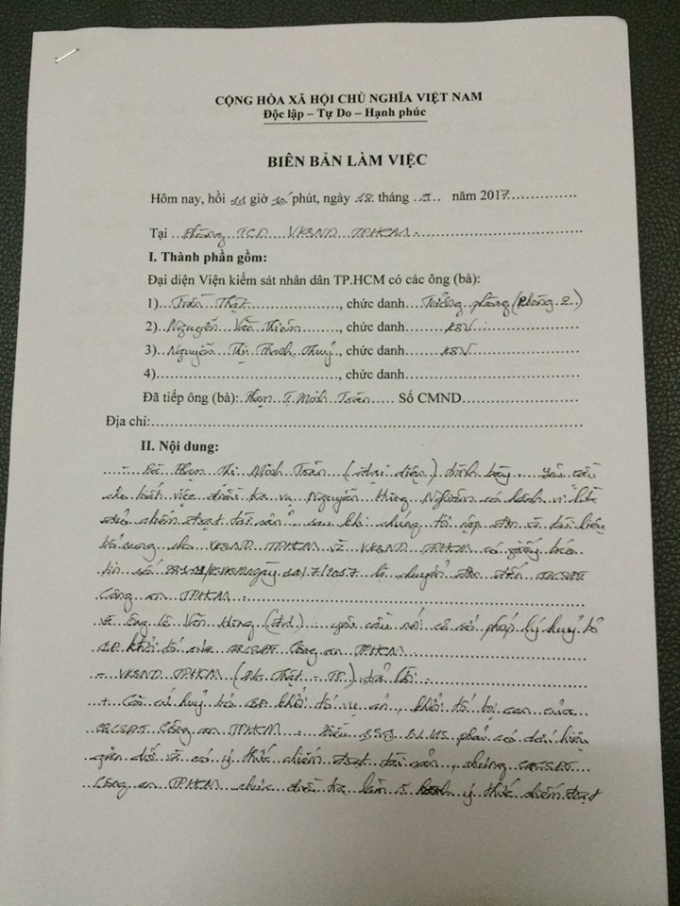 CỘNG HÒA XÃ HỘI CHỦ NGHĨA VIỆT NAM
Độc lập – Tự Do – Hạnh phúc
BIÊN BẢN LÀM VIỆC
Hôm nay, hồi giờ phút, ngày 18 tháng năm 2017
Tại Phòng VKSND TPHCM.
I. Thành phần gồm:
Đại diện Viện kiểm sát nhân dân TP.HCM có các ông (bà):
1) Trần Thật, chức danh Trưởng phòng (Phòng 2)
2) Nguyễn Văn, chức danh KSV
3) Nguyễn Thị Thanh Thuỷ, chức danh KSV
4), chức danh
Đã tiếp ông (bà): Phan T Minh Trân Số CMND
Địa chỉ:
II. Nội dung:
- Bà Phan Thị Minh Trân (đại diện) trình bày yêu cầu
cho biết việc điều tra vụ Nguyễn có hành vi lừa
đảo chiếm đoạt tài sản sau khi chúng tôi nộp đơn và tài liệu
bổ sung cho VKSND TPHCM và VKSND TPHCM có giấy báo
tin số ngày /7/2017 là chuyển đơn đến CSĐT
Công an TPHCM.
và ông Lê Văn Hùng yêu cầu nói cơ sở pháp lý huỷ bỏ
QĐ khởi tố của CQCSĐT Công an TPHCM.
- VKSND TPHCM (Thật - TP) trả lời:
+ Căn cứ huỷ bỏ QĐ khởi tố vụ án, khởi tố bị can của
CQCSĐT Công an TPHCM. Điều 139 BLHS phải có dấu hiệu
gian dối và có ý thức chiếm đoạt tài sản, nhưng CQCSĐT
Công an TPHCM chưa điều tra làm rõ ý thức chiếm đoạt